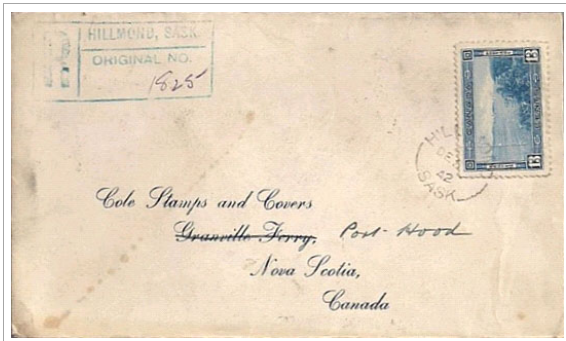 R
HILLMOND, SASK.
ORIGINAL NO.
1825
CANADA
13
13
HILLMOND
DE
42
SASK
Cole Stamps and Covers
Granville Ferry, Port Hood
Nova Scotia,
Canada